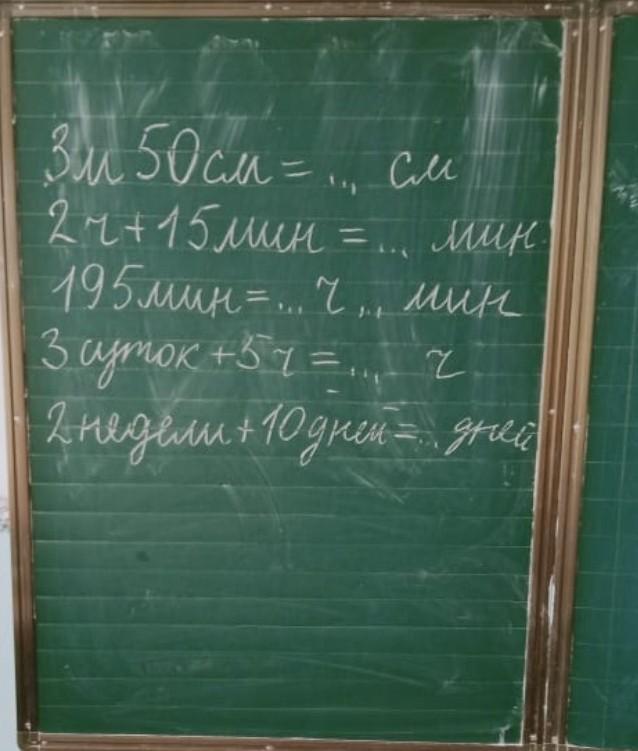 3м 50см = ... см
2ч+15мин = ... мин
195мин=...ч ... мин
3 суток +5ч = ... ч
2недели+10дней=... дней